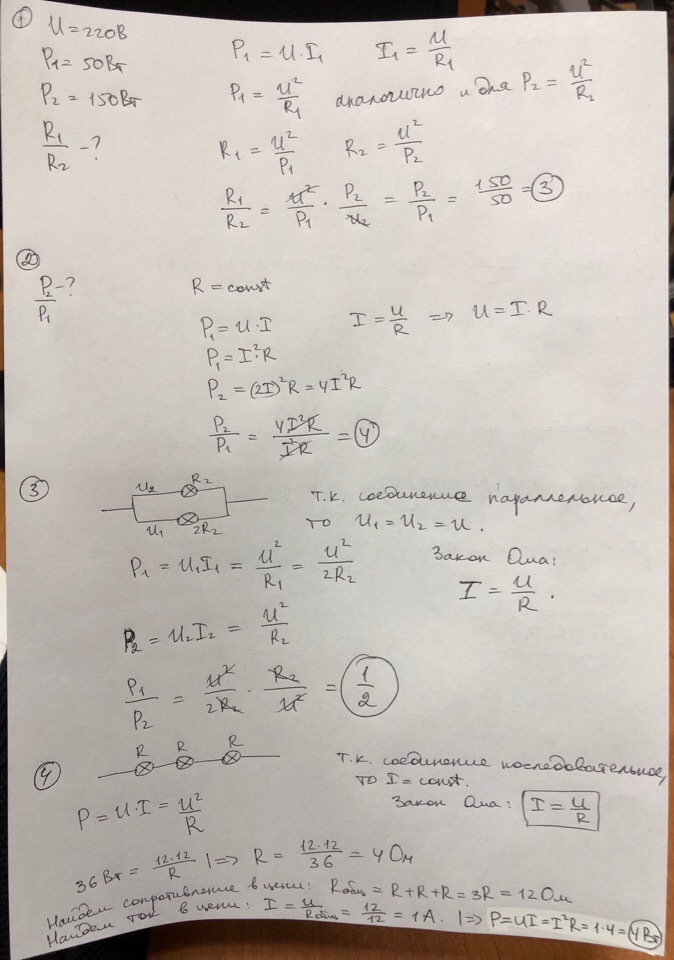 ① U = 220В
P₁ = 50Вт
P₂ = 150Вт
R₁/R₂ - ?
P₁ = U·I₁ I₁ = U/R₁
P₁ = U²/R₁ аналогично и для P₂ = U²/R₂
R₁ = U²/P₁ R₂ = U²/P₂
R₁/R₂ = U²/P₁ · P₂/U² = P₂/P₁ = 150/50 = 3
②
P₂/P₁ - ?
R = const
P₁ = U·I I = U/R => U = I·R
P₁ = I²·R
P₂ = (2I)²R = 4I²R
P₂/P₁ = 4I²R/I²R = 4
③
U₂ R₂
U₁ 2R₂
т.к. соединение параллельное,
то U₁ = U₂ = U.
P₁ = U₁I₁ = U²/R₁ = U²/2R₂
Закон Ома:
I = U/R.
P₂ = U₂I₂ = U²/R₂
P₁/P₂ = U²/2R₂ · R₂/U² = 1/2
④
R R R
т.к. соединение последовательное,
то I = const.
Закон Ома: I = U/R
P = U·I = U²/R
36Вт = 12·12/R |=> R = 12·12/36 = 4 Ом
Найдем сопротивление в цепи: Rобщ = R+R+R = 3R = 12 Ом
Найдем ток в цепи: I = U/Rобщ = 12/12 = 1А. |=> P = UI = I²R = 1·4 = 4Вт